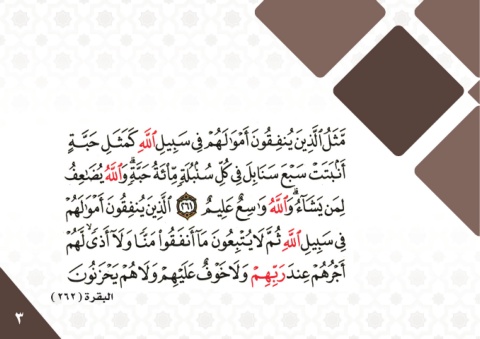 مَّثَلُ ٱلَّذِينَ يُنفِقُونَ أَمۡوَٰلَهُمۡ فِي سَبِيلِ ٱللَّهِ كَمَثَلِ حَبَّةٍ
أَنۢبَتَتۡ سَبۡعَ سَنَابِلَ فِي كُلِّ سُنۢبُلَةٖ مِّاْئَةُ حَبَّةٖۗ وَٱللَّهُ يُضَٰعِفُ
لِمَن يَشَآءُۗ وَٱللَّهُ وَٰسِعٌ عَلِيمٌ ٢٦١ ٱلَّذِينَ يُنفِقُونَ أَمۡوَٰلَهُمۡ
فِي سَبِيلِ ٱللَّهِ ثُمَّ لَا يُتۡبِعُونَ مَآ أَنفَقُواْ مَنّٗا وَلَآ أَذٗى لَّهُمۡ
أَجۡرُهُمۡ عِندَ رَبِّهِمۡ وَلَا خَوۡفٌ عَلَيۡهِمۡ وَلَا هُمۡ يَحۡزَنُونَ
البقرة (٢٦٢)
٣